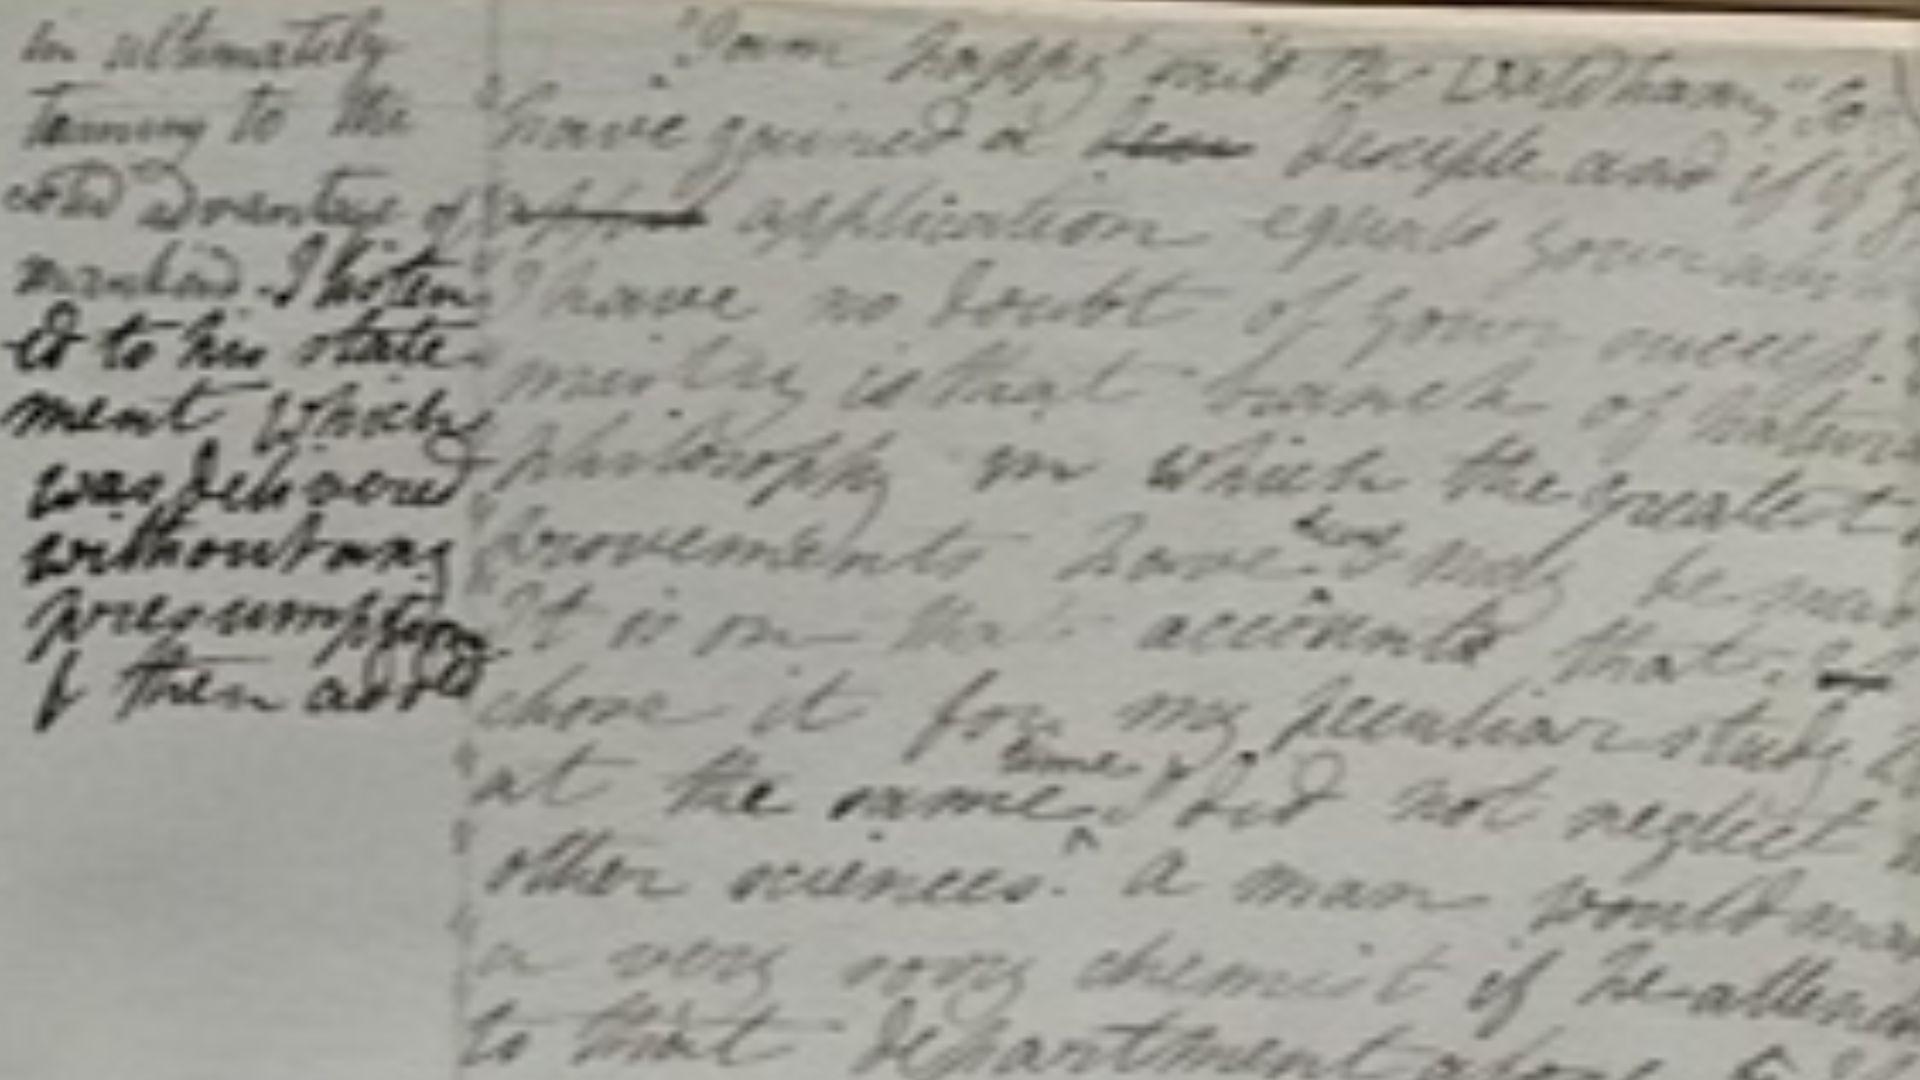 in ultimately
turning to the
solid advantage of
mankind. I listen
ed to his state-
ment which
was delivered
without any
presumption
& then added
"I am happy" said Mr Waldham, "to
have gained a disciple and if
application equals your
I have no doubt of your success.
mistry is that branch of natura
philosophy in which the greatest
provements have been & may be ma
it is on that account that I
chose it for my peculiar study
at the same time I did not neglect
other sciences. a man would ma
a very sorry chemist if he atten
to that department alone